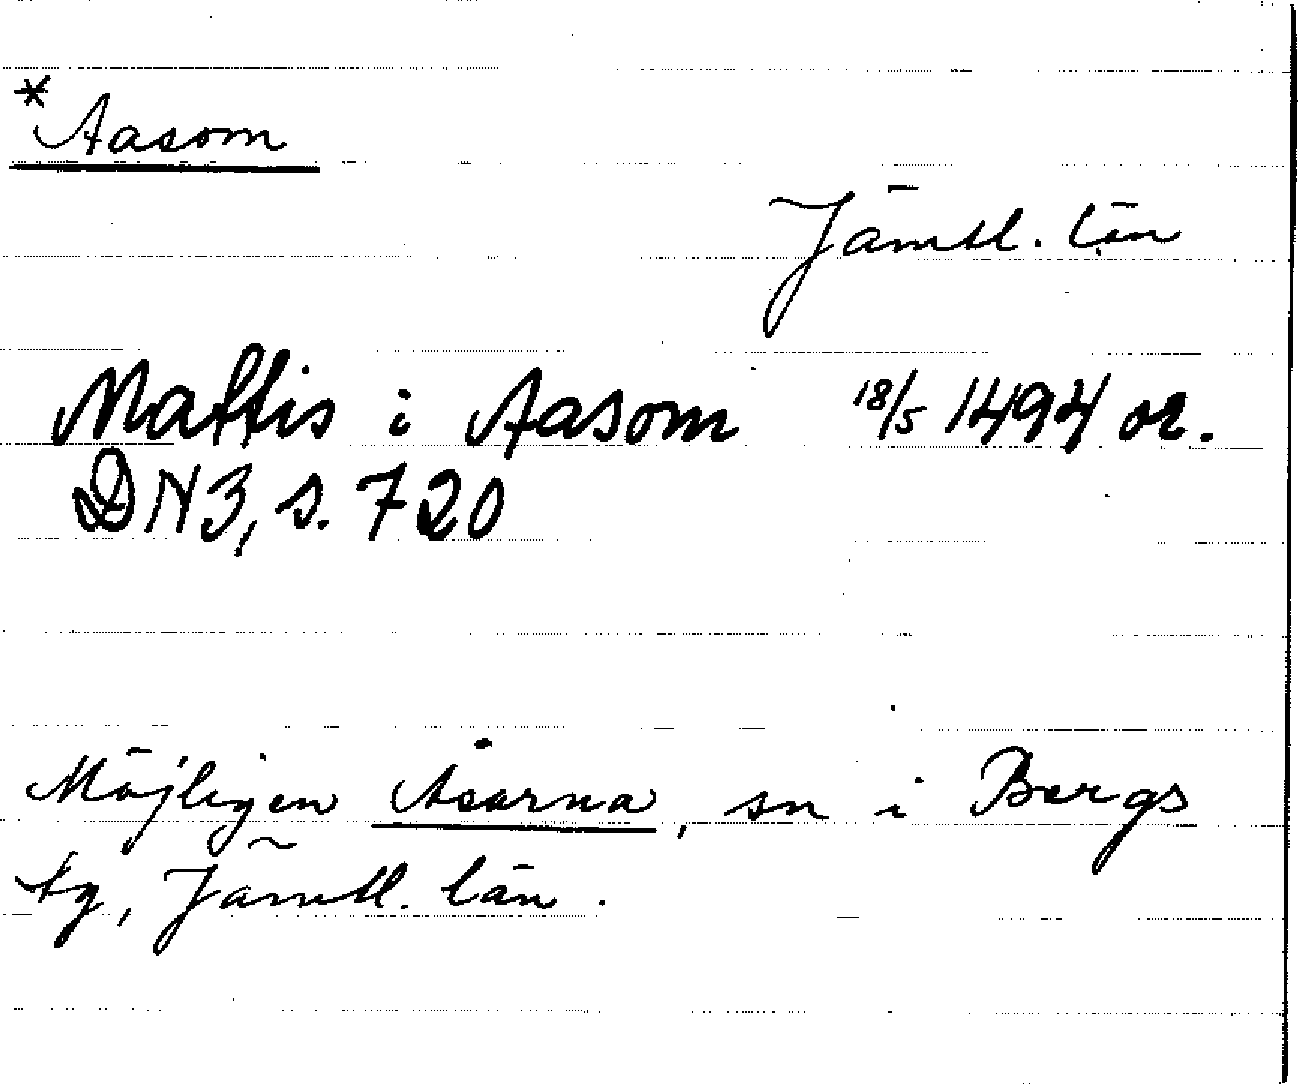 * Aasom
Jämtl. län
Mattis i Aasom 18/5 1494 or.
DN3, s. 720
Möjligen Åsarna, sn i Bergs
tg, Jämtl. län.